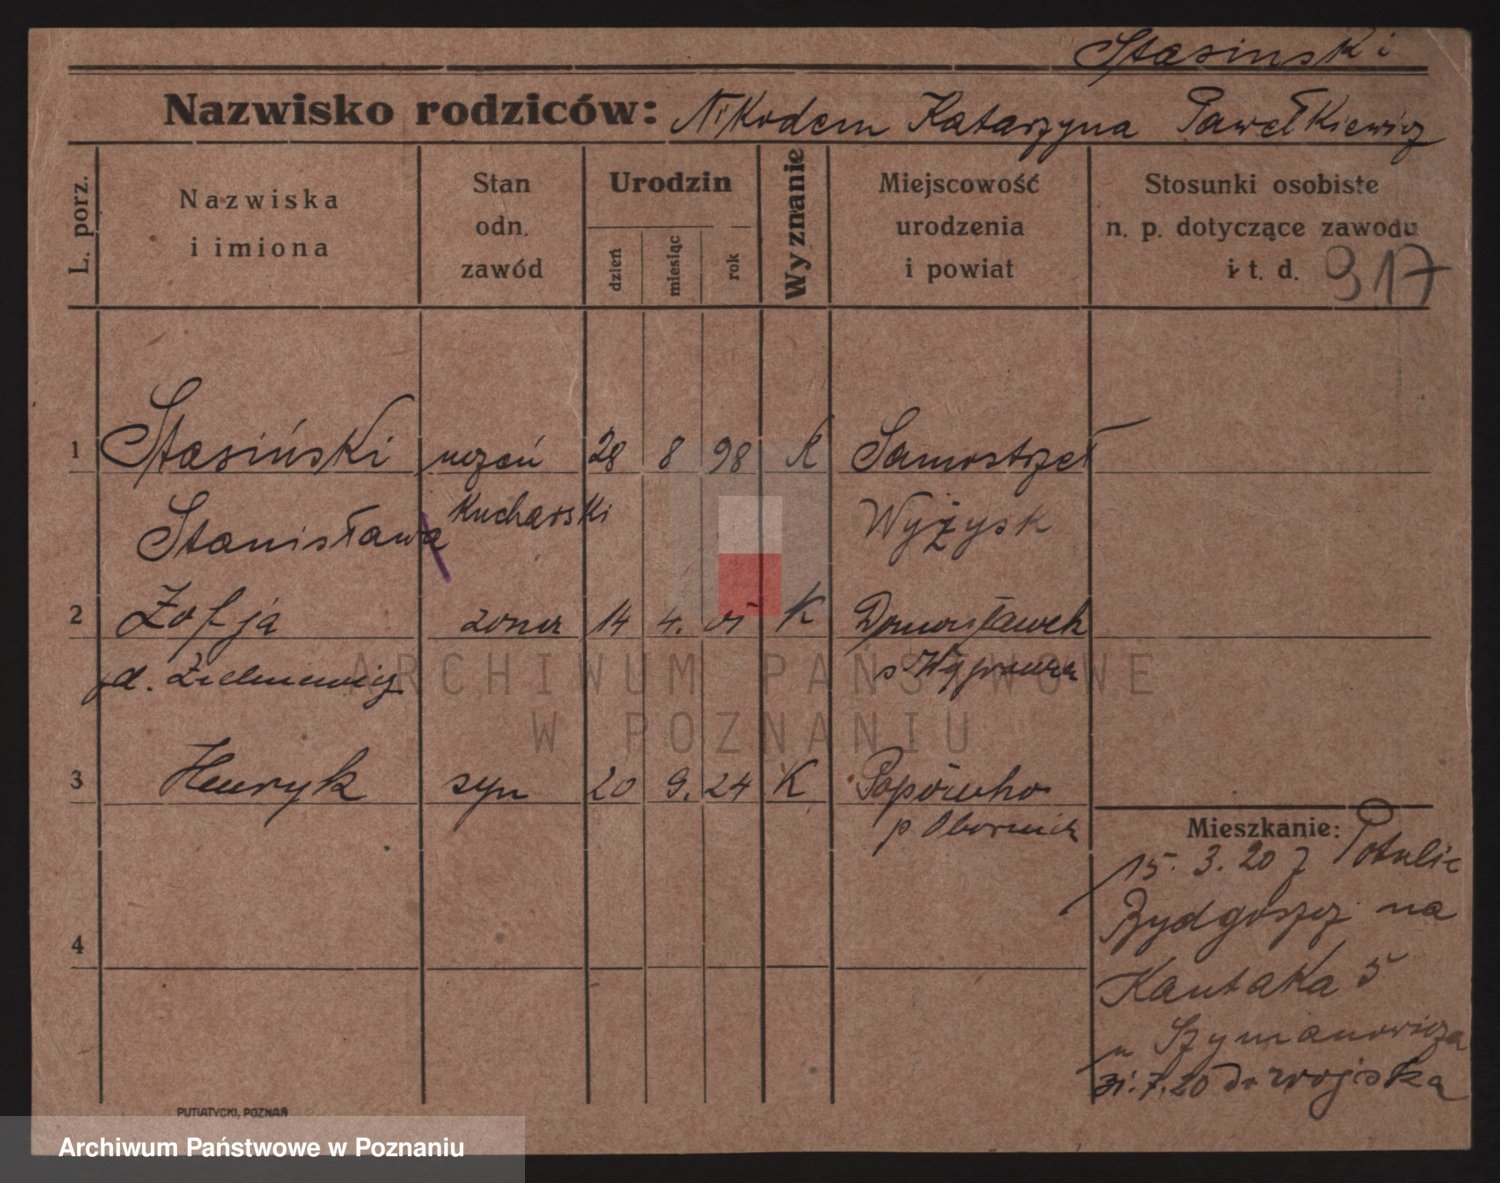 Stasinski
Nazwisko rodziców: Nikodem Katarzyna Pawełkiewicz
L. porz.
Nazwiska
i imiona
Stan
odn.
zawód
Urodzin
dzień
miesiąc
rok
Wyznanie
Miejscowość
urodzenia
i powiat
Stosunki osobiste
n. p. dotyczące zawodu
i t. d. 917
1 Stasiński uczeń 28 8 98 K Samostrzeł
Stanisława Kucharski Wyżysk
2 Zofja żona 14 4. 01 K Domosławek
d. s Wągrowca
3 Henryk syn 20 9. 24 K Popówko
p Obornik
4
Mieszkanie:
15. 3. 20 z Potulic
Bydgoszcz na
Kantaka 5
u Szymanowicza
31. 7. 20 do wojska
PUTIATYCKI, POZNAŃ
ARCHIWUM PAŃSTWOWE
W POZNANIU
Archiwum Państwowe w Poznaniu